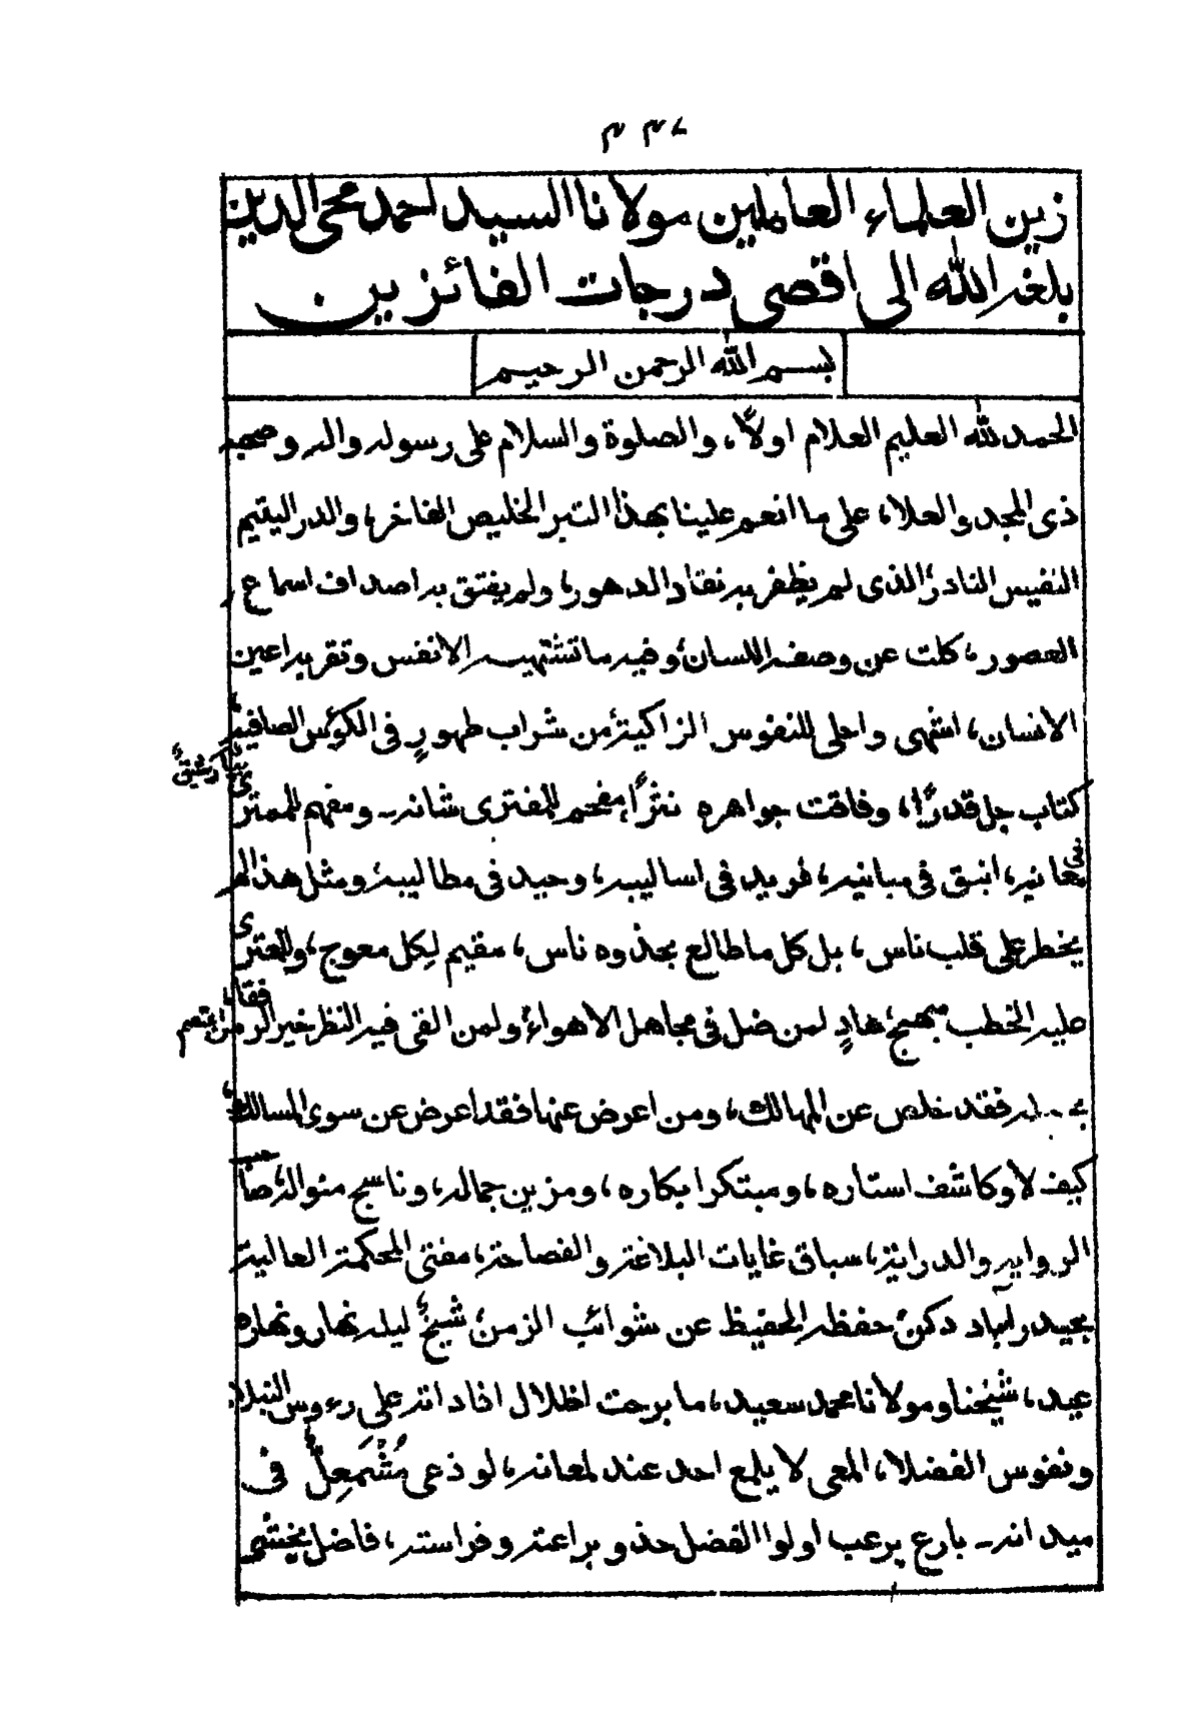 زين العلماء العاملين مولانا السيد احمد محى الدين
بلغه الله الى اقصى درجات الفائزين
بسم الله الرحمن الرحيم
الحمد لله العليم العلام اولاً، والصلوة والسلام على رسوله واله وصحبه
ذى المجد والعلا، على ما انعم علينا بهذا التبر الخليص الفاخر، والدر اليتيم
النفيس النادر، الذى لم يظفر به نقاد الدهور، ولم يفتق به اصداف اسماع
العصور، كلت عن وصفه اللسان، وفيه ما تشتهيه الانفس وتقر به اعين
الانسان، اشهى واحلى للنفوس الزاكية، من شراب طهورٍ فى الكؤس الصافية،
كتاب جل قدرًا، وفاقت جواهره نثرًا، مفحم للمفترى شانه۔ ومفهم للممترى
معانيه، انيق فى مبانيه، فريد فى اساليبه، وحيد فى مطاليبه، ومثل هذا لم
يخطر على قلب ناس، بل كل ما طالع بجذوه ناس، مقيم لكل معوج، وللمعترى
عليه الخطب مبهج، هادٍ لمن ضل فى مجاهل الاهواء، ولمن القى فيه النظر خير الرفقاء، من اعتصم
بحبله فقد خلص عن المهالك، ومن اعرض عنها فقد اعرض عن سوى المسالك،
كيف لا وكاشف استاره، ومبتكر ابكاره، ومزين جماله، وناسج منواله، صاحب
الرواية والدراية، سباق غايات البلاغة والفصاحة، مفتى المحكمة العالية
بحيدرآباد دكن، حفظه الحفيظ عن شوائب الزمن، شيخٌ ليله نهار ونهاره
عيد، شيخنا ومولانا محمد سعيد، ما برحت اظلال افاداته على رءوس النبلاء
ونفوس الفضلا، المعى لا يلمع احد عند لمعانه، لوذعى مُشْمَعِلٌّ فى
ميدانه۔ بارع يرعب اولوا الفضل حذو براعته وفراسته، فاضل يختشى